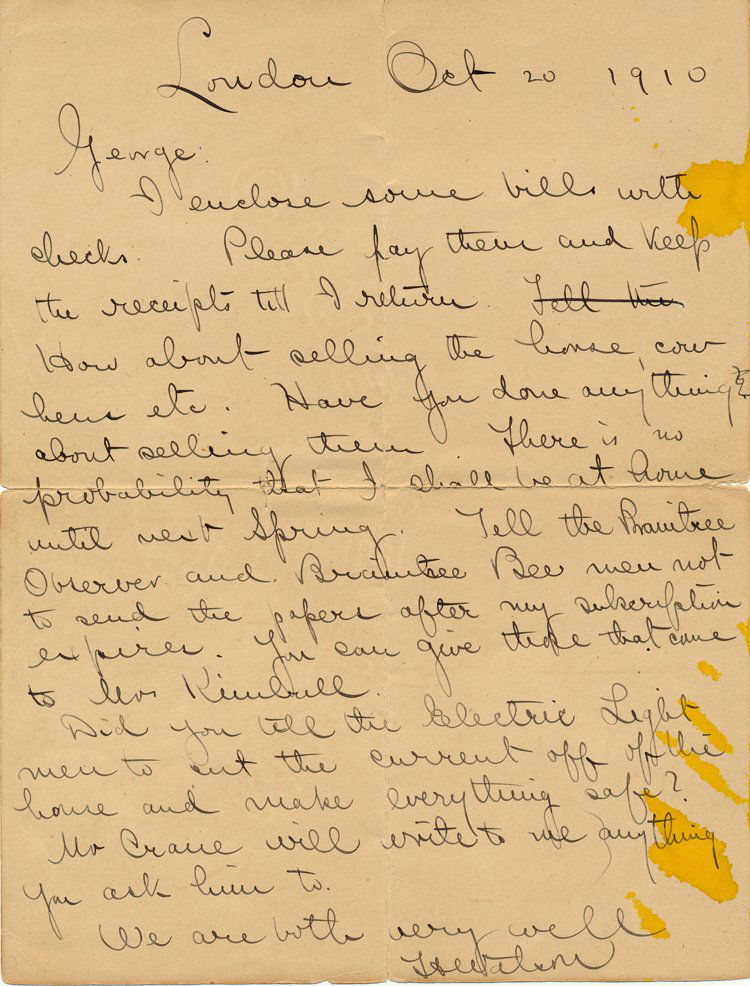 London Oct 20 1910
George:
I enclose some bills with
checks. Please pay them and keep
the receipts till I return. Tell the
How about selling the horse, cow
hens etc. Have you done anything
about selling them There is no
probability that I shall be at home
until next Spring. Tell the Braintree
Observer and Braintree Bee men not
to send the papers after my subscription
expires. You can give those that come
to Mrs Kimball.
Did you tell the Electric Light
men to cut the current off of the
house and make everything safe?
Mr Crane will write to me anything
you ask him to.
We are both very well